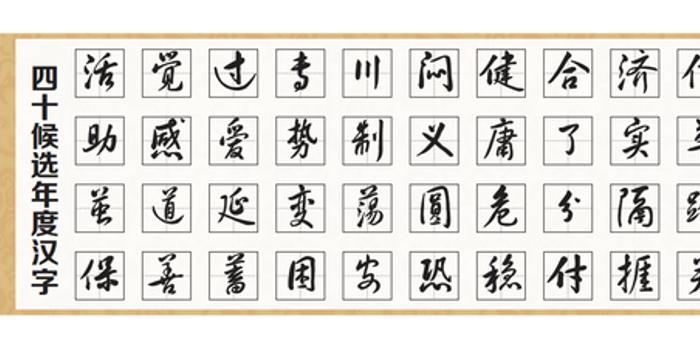 四十候选年度汉字
活觉过专川闷健合济
助感爱势制义庸了实
茧道延变荡圆危分隔
保善蓄困安恐稳付捱